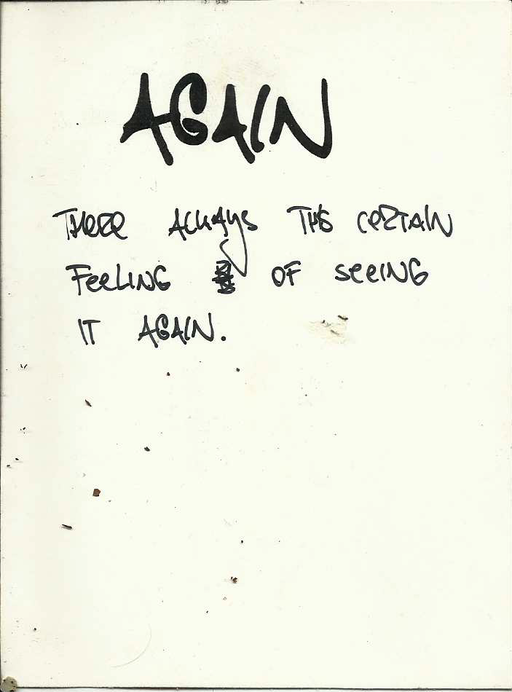 AGAIN
THERE ALWAYS THIS CERTAIN
FEELING OF SEEING
IT AGAIN.